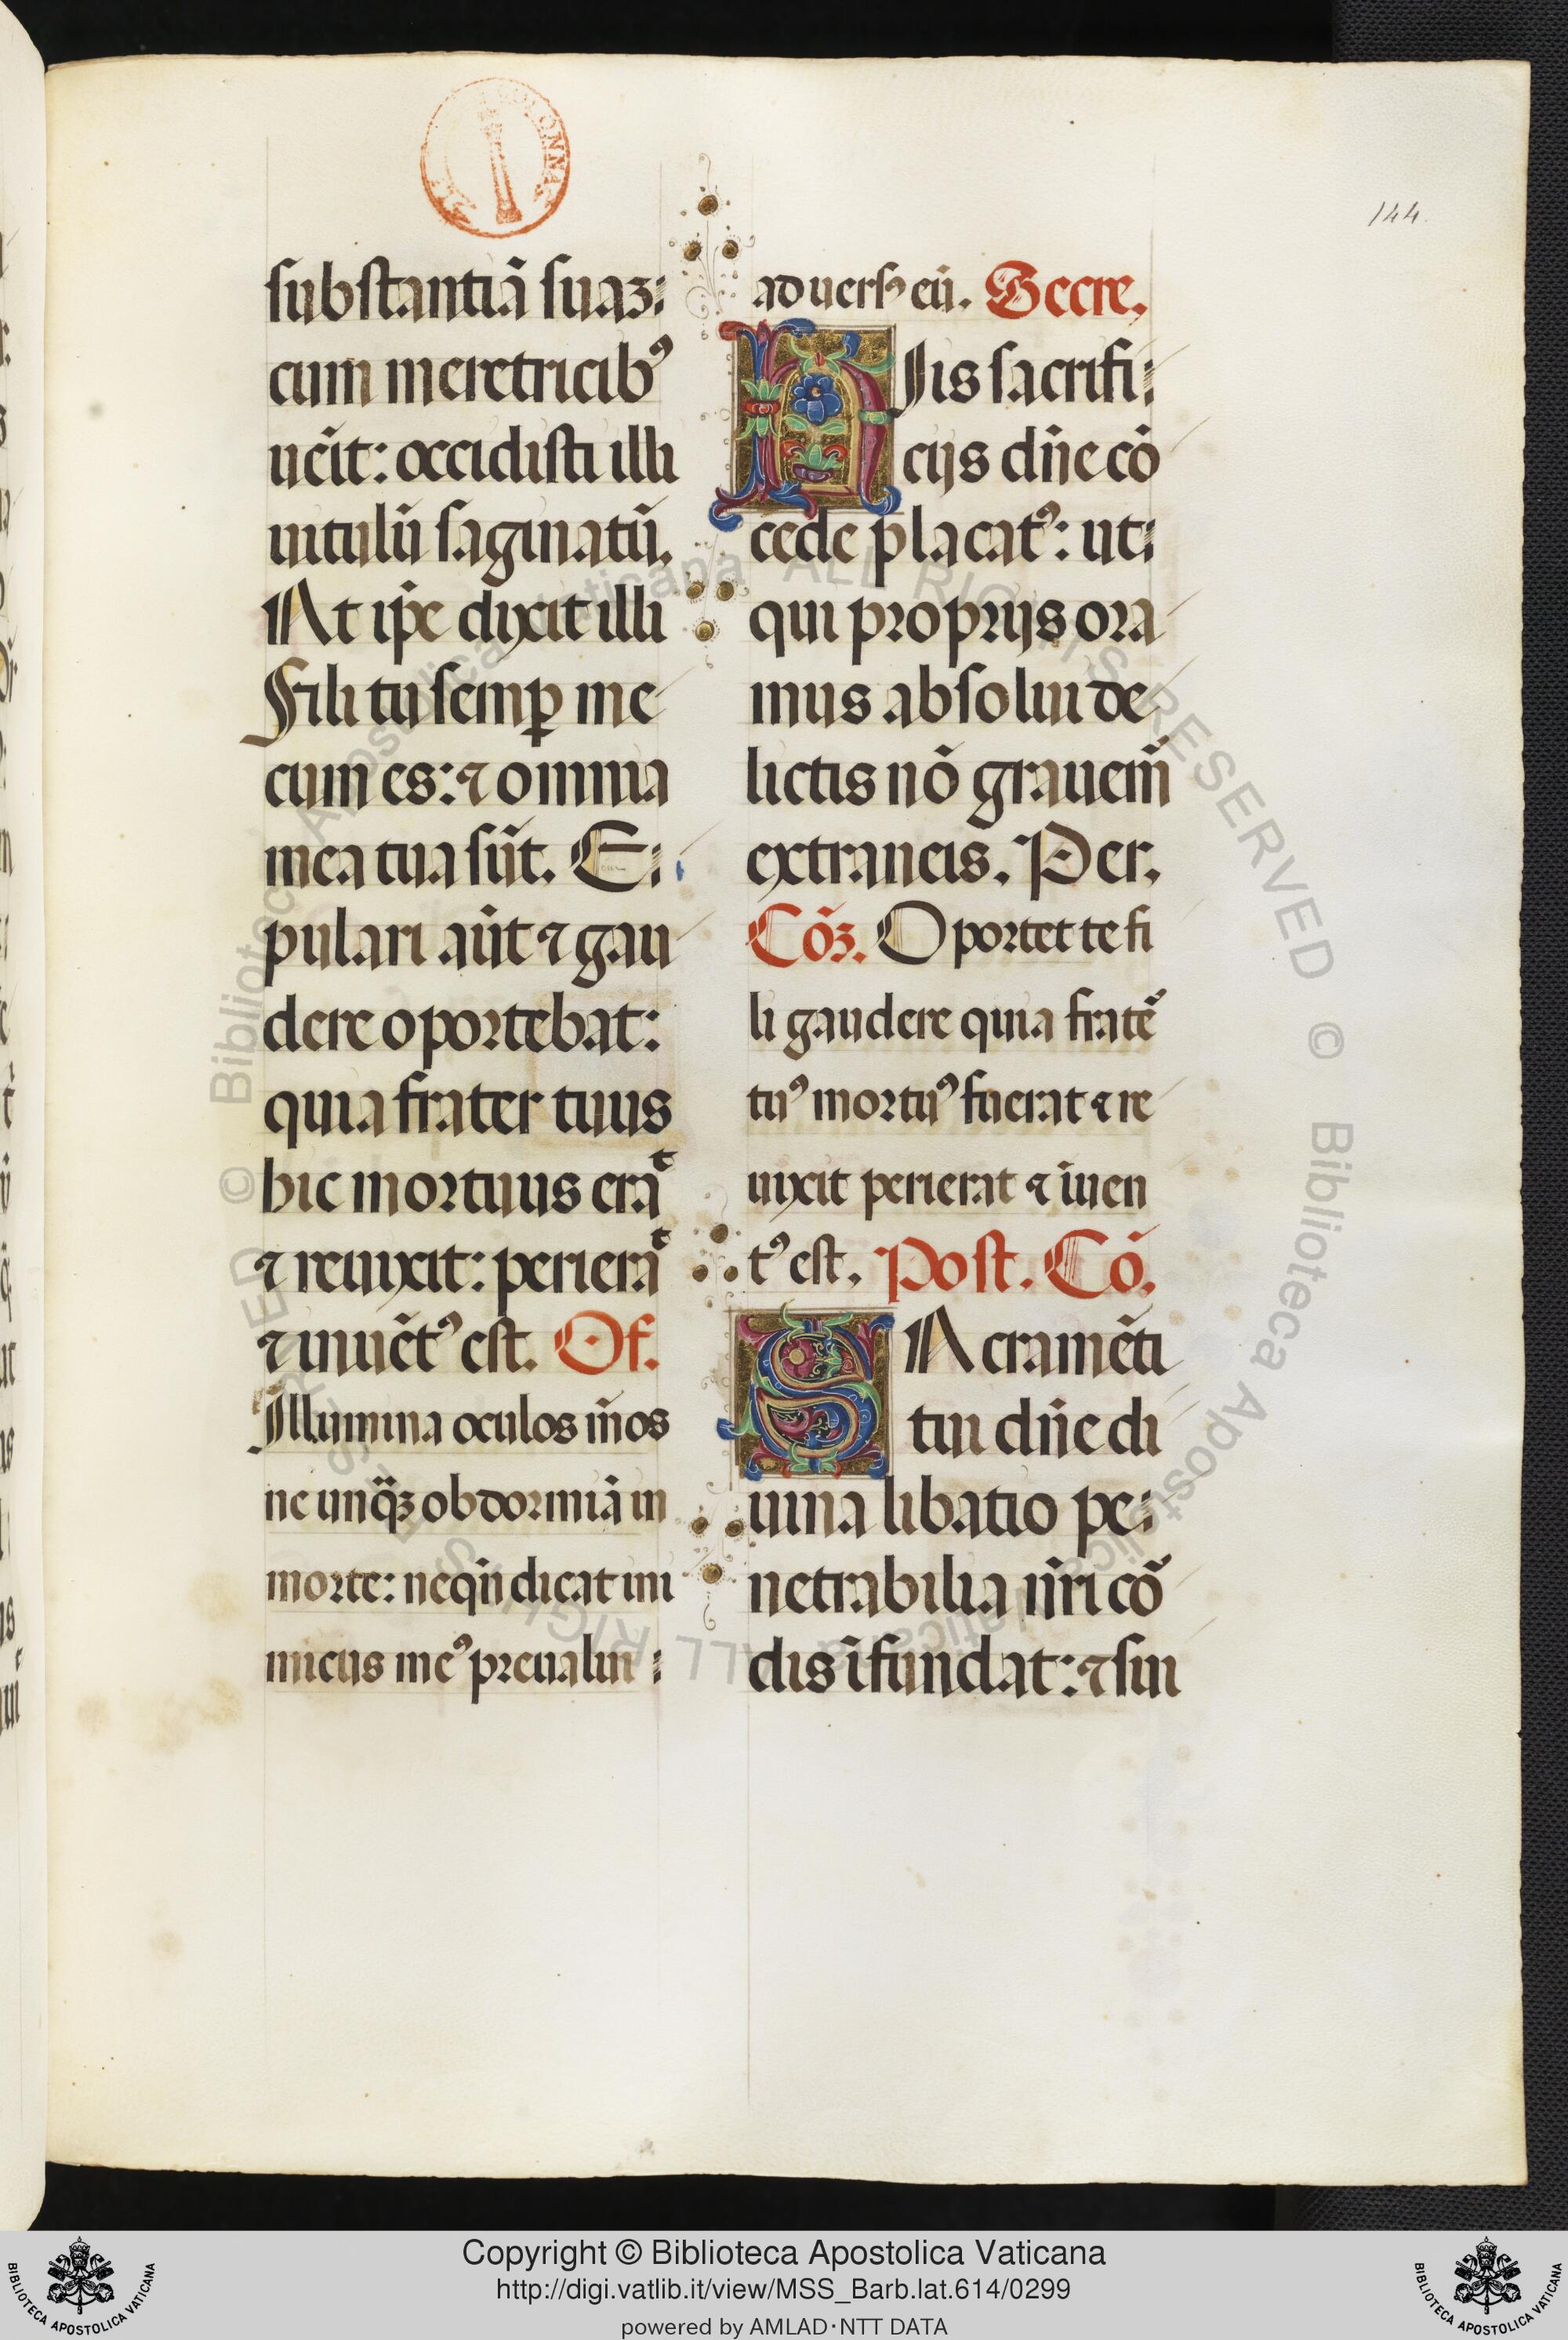 144.
substantiā suaꝫ:
cum meretricibꝰ
uēit: occidisti illi
uitulū saginatū.
At ip̄e dixit illi
Fili tu semꝑ me
cum es: ⁊ omnia
mea tua sūt. E:
pulari aūt ⁊ gau
dere oportebat:
quia frater tuus
hic mortuus eraͭ
⁊ reuixit: perieraͭ
⁊ inuētꝰ est. Of.
Illumina oculos m̄os
ne unq̄ꝫ obdormiā in
morte: neqn̄ dicat ini
micus meꝰ preualui :
aduersꝰ eū. Secre.
His sacrifi:
cijs dn̄e cō
cede placatꝰ: ut:
qui proprijs ora
mus absolui de
lictis nō grauem̄
extraneis. Per.
Cōꝫ. Oportet te fi
li gaudere quia fratẽ
tuꝰ mortuꝰ fuerat ⁊ re
uixit perierat ⁊ īuen
tꝰ est. Post. Cō.
SAcramēti
tui dn̄e di
uina libatio pe:
netrabilia nr̄i cō
dis īfundat: ⁊ sui
Copyright © Biblioteca Apostolica Vaticana
http://digi.vatlib.it/view/MSS_Barb.lat.614/0299
powered by AMLAD·NTT DATA
BIBLIOTECA APOSTOLICA VATICANA
BIBLIOTECA APOSTOLICA VATICANA
© Biblioteca Apostolica Vaticana ALL RIGHTS RESERVED © Biblioteca Apostolica Vaticana ALL RIGHTS RESERVED